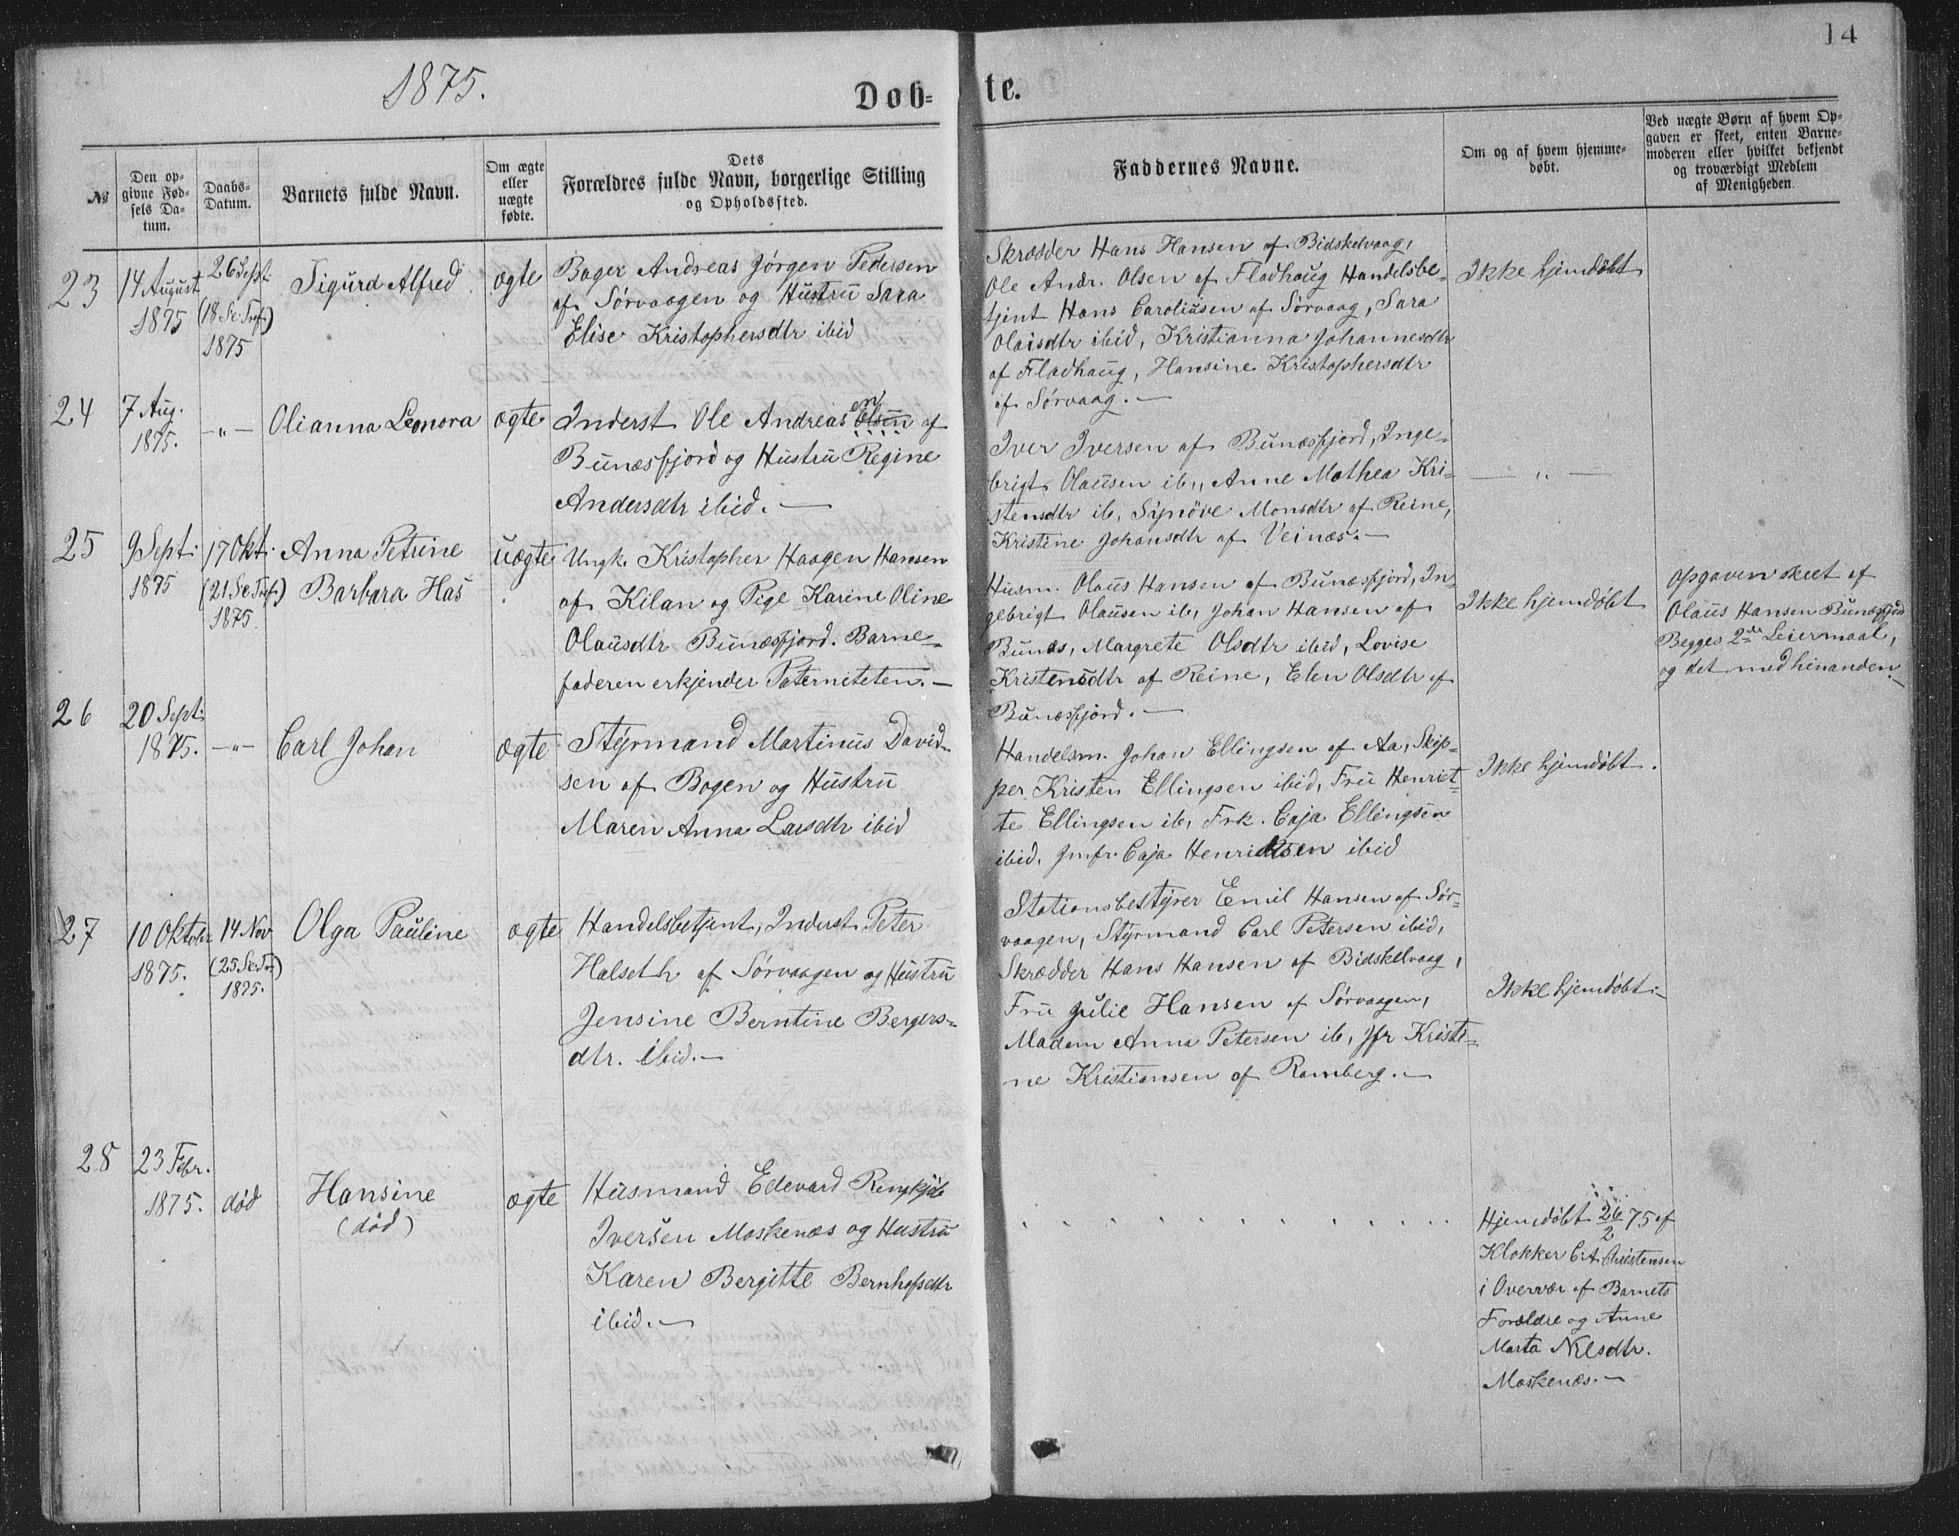 1875.
14
Døb-
te.
№
Den op-
givne Fød-
sels Da-
tum.
Daabs-
Datum.
Barnets fulde Navn.
Om ægte
eller
uægte
fødte.
Dets
Forældres fulde Navn, borgerlige Stilling
og Opholdssted.
Faddernes Navne.
Om og af hvem hjemme-
døbt.
Ved uægte Børn af hvem Op-
gaven er skeet, enten Barne-
moderen eller hvilket bekjendt
og troværdigt Medlem
af Menigheden.
23
14 August
1875
26 Sept.
(18 Se. Tref.)
1875
Sigurd Alfred
ægte
Bager Andreas Jørgen Pedersen
af Sørvaagen og Hustru Sara
Elise Kristophersdtr ibid
Skrædder Hans Hansen af Bidskelvaag,
Ole Andr. Olsen af Fladhaug Handelsbe-
tjent Hans Caroliusen af Sørvaag, Sara
Olaisdtr ibid, Kristianna Johannesdtr
af Fladhaug, Hansine Kristophersdtr
af Sørvaag. —
Ikke hjemdøbt
24
7 Aug.
1875.
— " —
Olianna Leonora
ægte
Inderst Ole Andreas Olsen af
Bunæsfjord og Hustru Regine
Andersdtr ibid. —
Iver Iversen af Bunæsfjord, Inge-
brigt Olausen ib., Anne Mathea Kri-
stensdtr ib, Synöve Monsdtr af Reine,
Kristine Johansdtr af Veinæs. —
— " —
25
9 Sept.
1875
17 Okt.
(21 Se. Tref.)
1875.
Anna Petrine
Barbara Has
uægte
Ungk. Kristopher Haagen Hansen
af Kilan og Pige Karine Oline
Olausdtr Bunæsfjord. Barne-
faderen erkjender Paterniteten. —
Husm. Olaus Hansen af Bunæsfjord, In-
gebrigt Olausen ib, Johan Hansen af
Bunæs, Margrete Olsdtr ibid, Lovise
Kristensdtr af Reine, Elen Olsdtr af
Bunæsfjord. —
Ikke hjemdøbt
Opgaven skeet af
Olaus Hansen Bunæsfjord
Begges 2de Leiermaal,
og det med hinanden. —
26
20 Sept.
1875.
— " —
Carl Johan
ægte
Styrmand Martinus David-
sen af Bogen og Hustru
Maren Anna Larsdtr ibid
Handelsm. Johan Ellingsen af Aa, Skip-
per Kristen Ellingsen ibid, Fru Henriet-
te Ellingsen ib, Frk. Caja Ellingsen
ibid, Jmfr. Caja Henriksen ibid
Ikke hjemdøbt.
27
10 Oktober
1875.
14 Nov
(25 Se. Tr.)
1875.
Olga Pauline
ægte
Handelsbetjent, Inderst Peter
Halseth af Sørvaagen og Hustru
Jensine Berntine Bergers-
dtr. ibid. —
Stationsbestyrer Emil Hansen af Sør-
vaagen, Styrmand Carl Petersen ibid,
Skrædder Hans Hansen af Bidskelvaag,
Fru Julie Hansen af Sørvaagen,
Madam Anna Petersen ib, Jfr Kristi-
ne Kristiansen af Ramberg. —
Ikke hjemdøbt. —
28
23 Febr.
1875.
død
Hansine
(død)
ægte
Husmand Edevard
Iversen Moskenæs og Hustru
Karen Bergitte Bernhofsdtr
ibid. —
Hjemdøbt 26/2 75 af
Klokker C. A. Christensen
i Overvær af Barnets
Forældre og Anne
Marta Nilsdtr.
Moskenæs. —